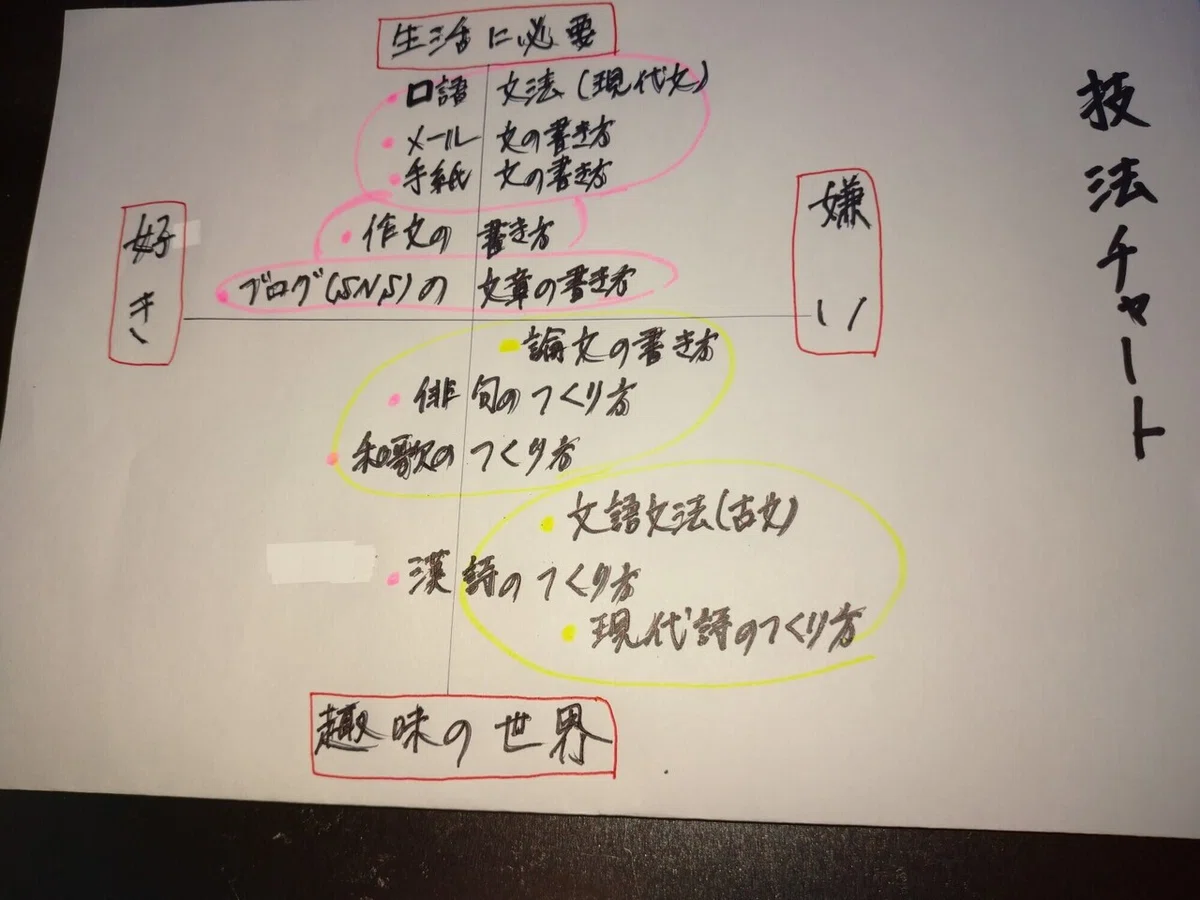 技法チャート
生活に必要
口語文法(現代文)
メール文の書き方
手紙文の書き方
作文の書き方
ブログ(SNS)の文章の書き方
好き
嫌い
論文の書き方
俳句のつくり方
和歌のつくり方
文語文法(古文)
漢詩のつくり方
現代詩のつくり方
趣味の世界